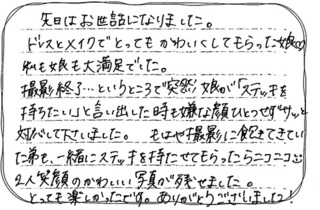 先日はお世話になりました。
ドレスとメイクでとってもかわいくしてもらった娘(^^)
私も娘も大満足でした。
撮影終了…というところで突然娘が「ステッキを
持ちたい」と言い出した時も嫌な顔ひとつせずサッと
対応して下さいました。もはや撮影に飽きてきてい
た弟も、一緒にステッキを持たせてもらったらニコニコ
2人笑顔のかわいい写真が残せました。
とっても楽しかったです。ありがとうございました!